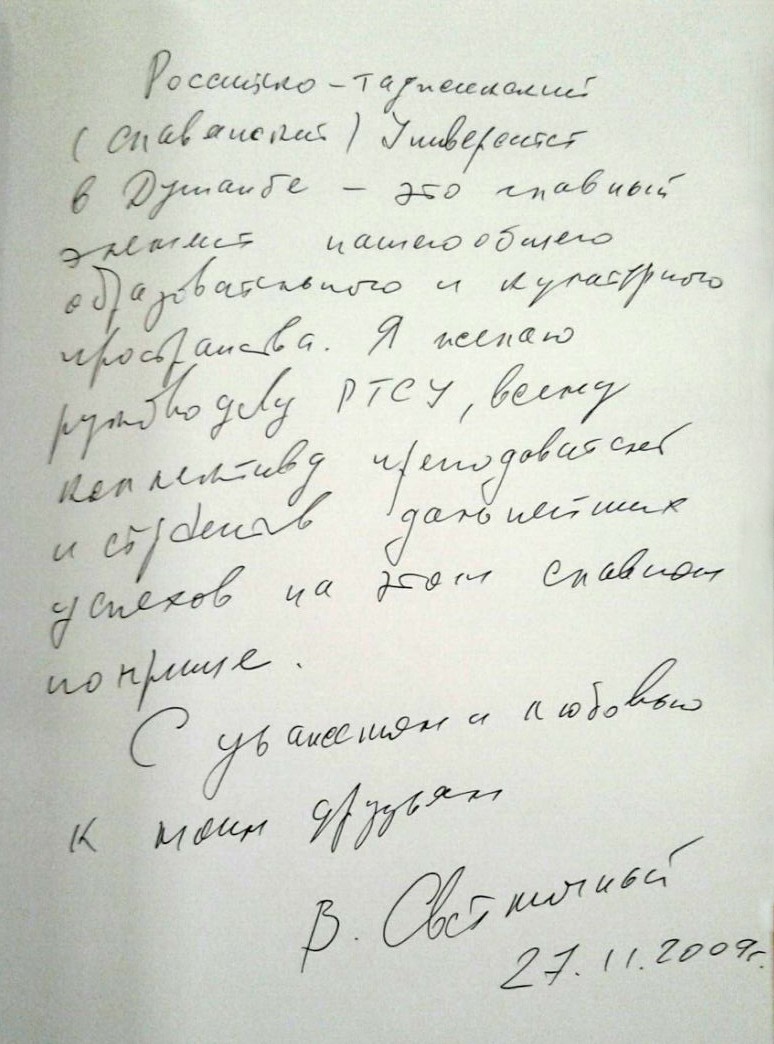 Российско-таджикский
(славянский) Университет
в Душанбе – это главный
элемент нашего общего
образовательного и культурного
пространства. Я желаю
руководству РТСУ, всему
коллективу преподавателей
и студентов дальнейших
успехов на этом славном
поприще.
С уважением и любовью
к моим друзьям
В. Светличный
27.11.2009г.